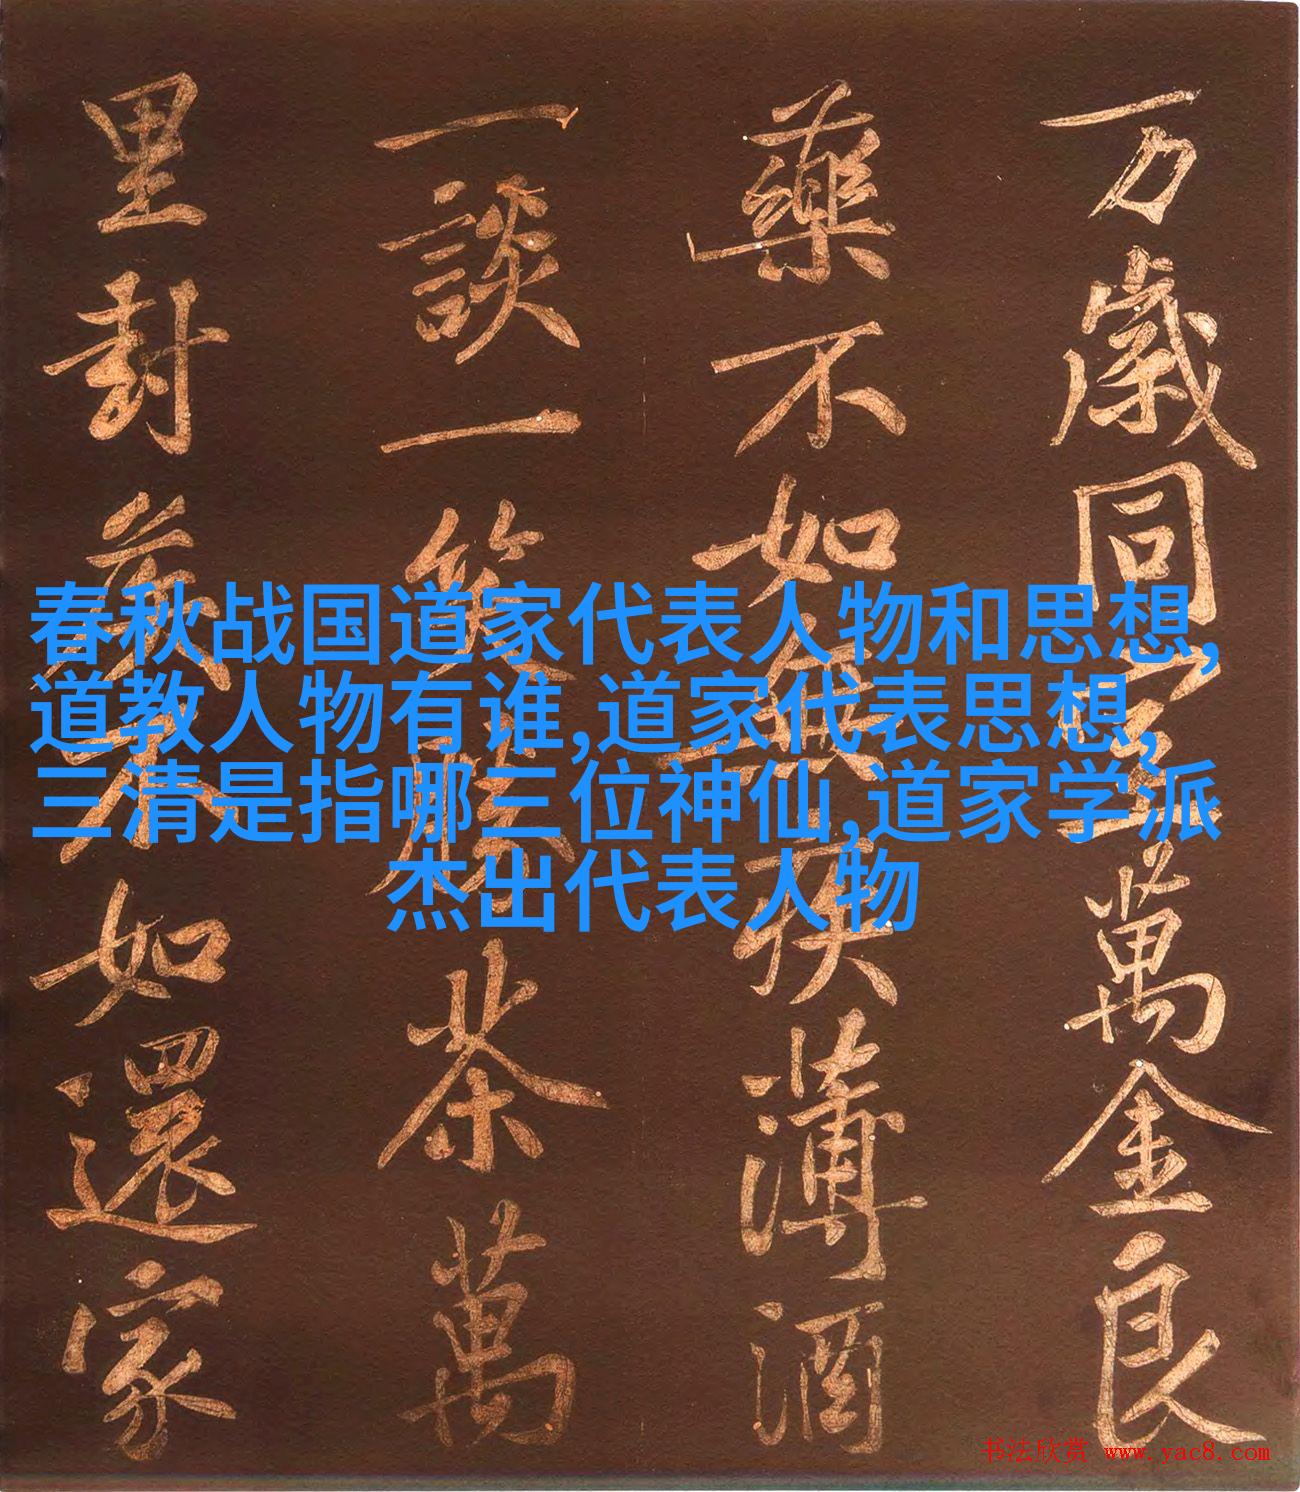 万歲同萬金良
藥不如無疾薄酒
一談一笑勝茶萬
里封不如還家
春秋战国道家代表人物和思想,
道教人物有谁,道家代表思想,
三清是指哪三位神仙,道家学派
杰出代表人物
书法欣赏 www.yac8.com